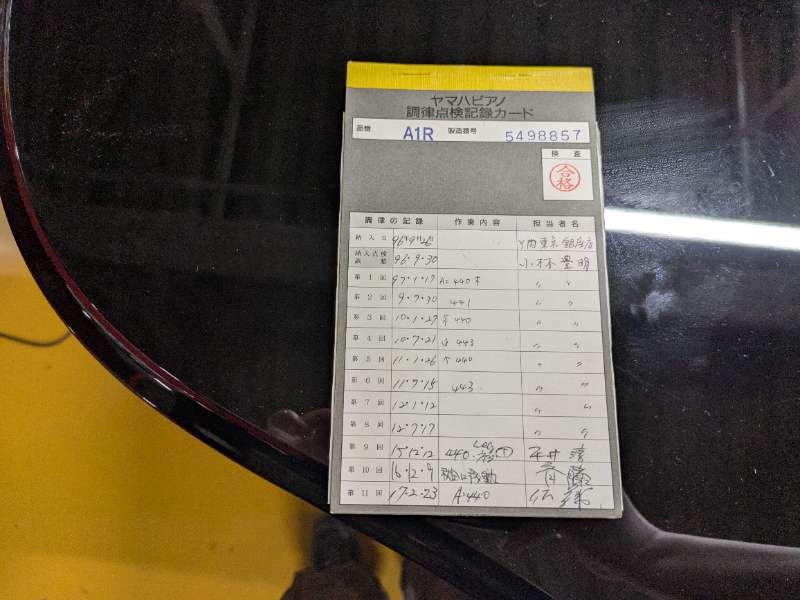 ヤマハピアノ
調律点検記録カード
品番 A1R 製造番号 5498857
検査
合格
調律の記録 作業内容 担当者名
納入日 96.9.26
納入点検調整 96.9.30 小林豊明
第1回 97.1.17 A=440 〃 〃
第2回 9.9.30 441 〃 〃
第3回 10.1.27 440 〃 〃
第4回 10.7.21 443 〃 〃
第5回 11.1.26 440 〃 〃
第6回 11.7.15 443 〃 〃
第7回 12.1.12 〃 〃
第8回 12.7.17 〃 〃
第9回 15.12.12 440
第10回 16.12.9
第11回 17.2.23 A.440